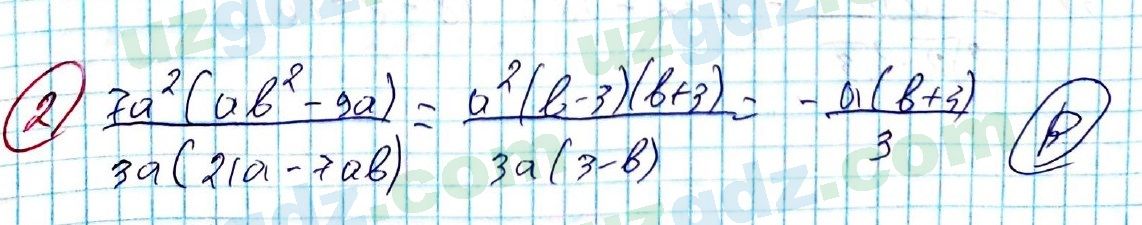 2) 7a²(ab² - 9a) / 3a(21a - 7ab) = a²(b-3)(b+3) / 3a(3-b) = - a(b+3) / 3 B
uzgdz.com